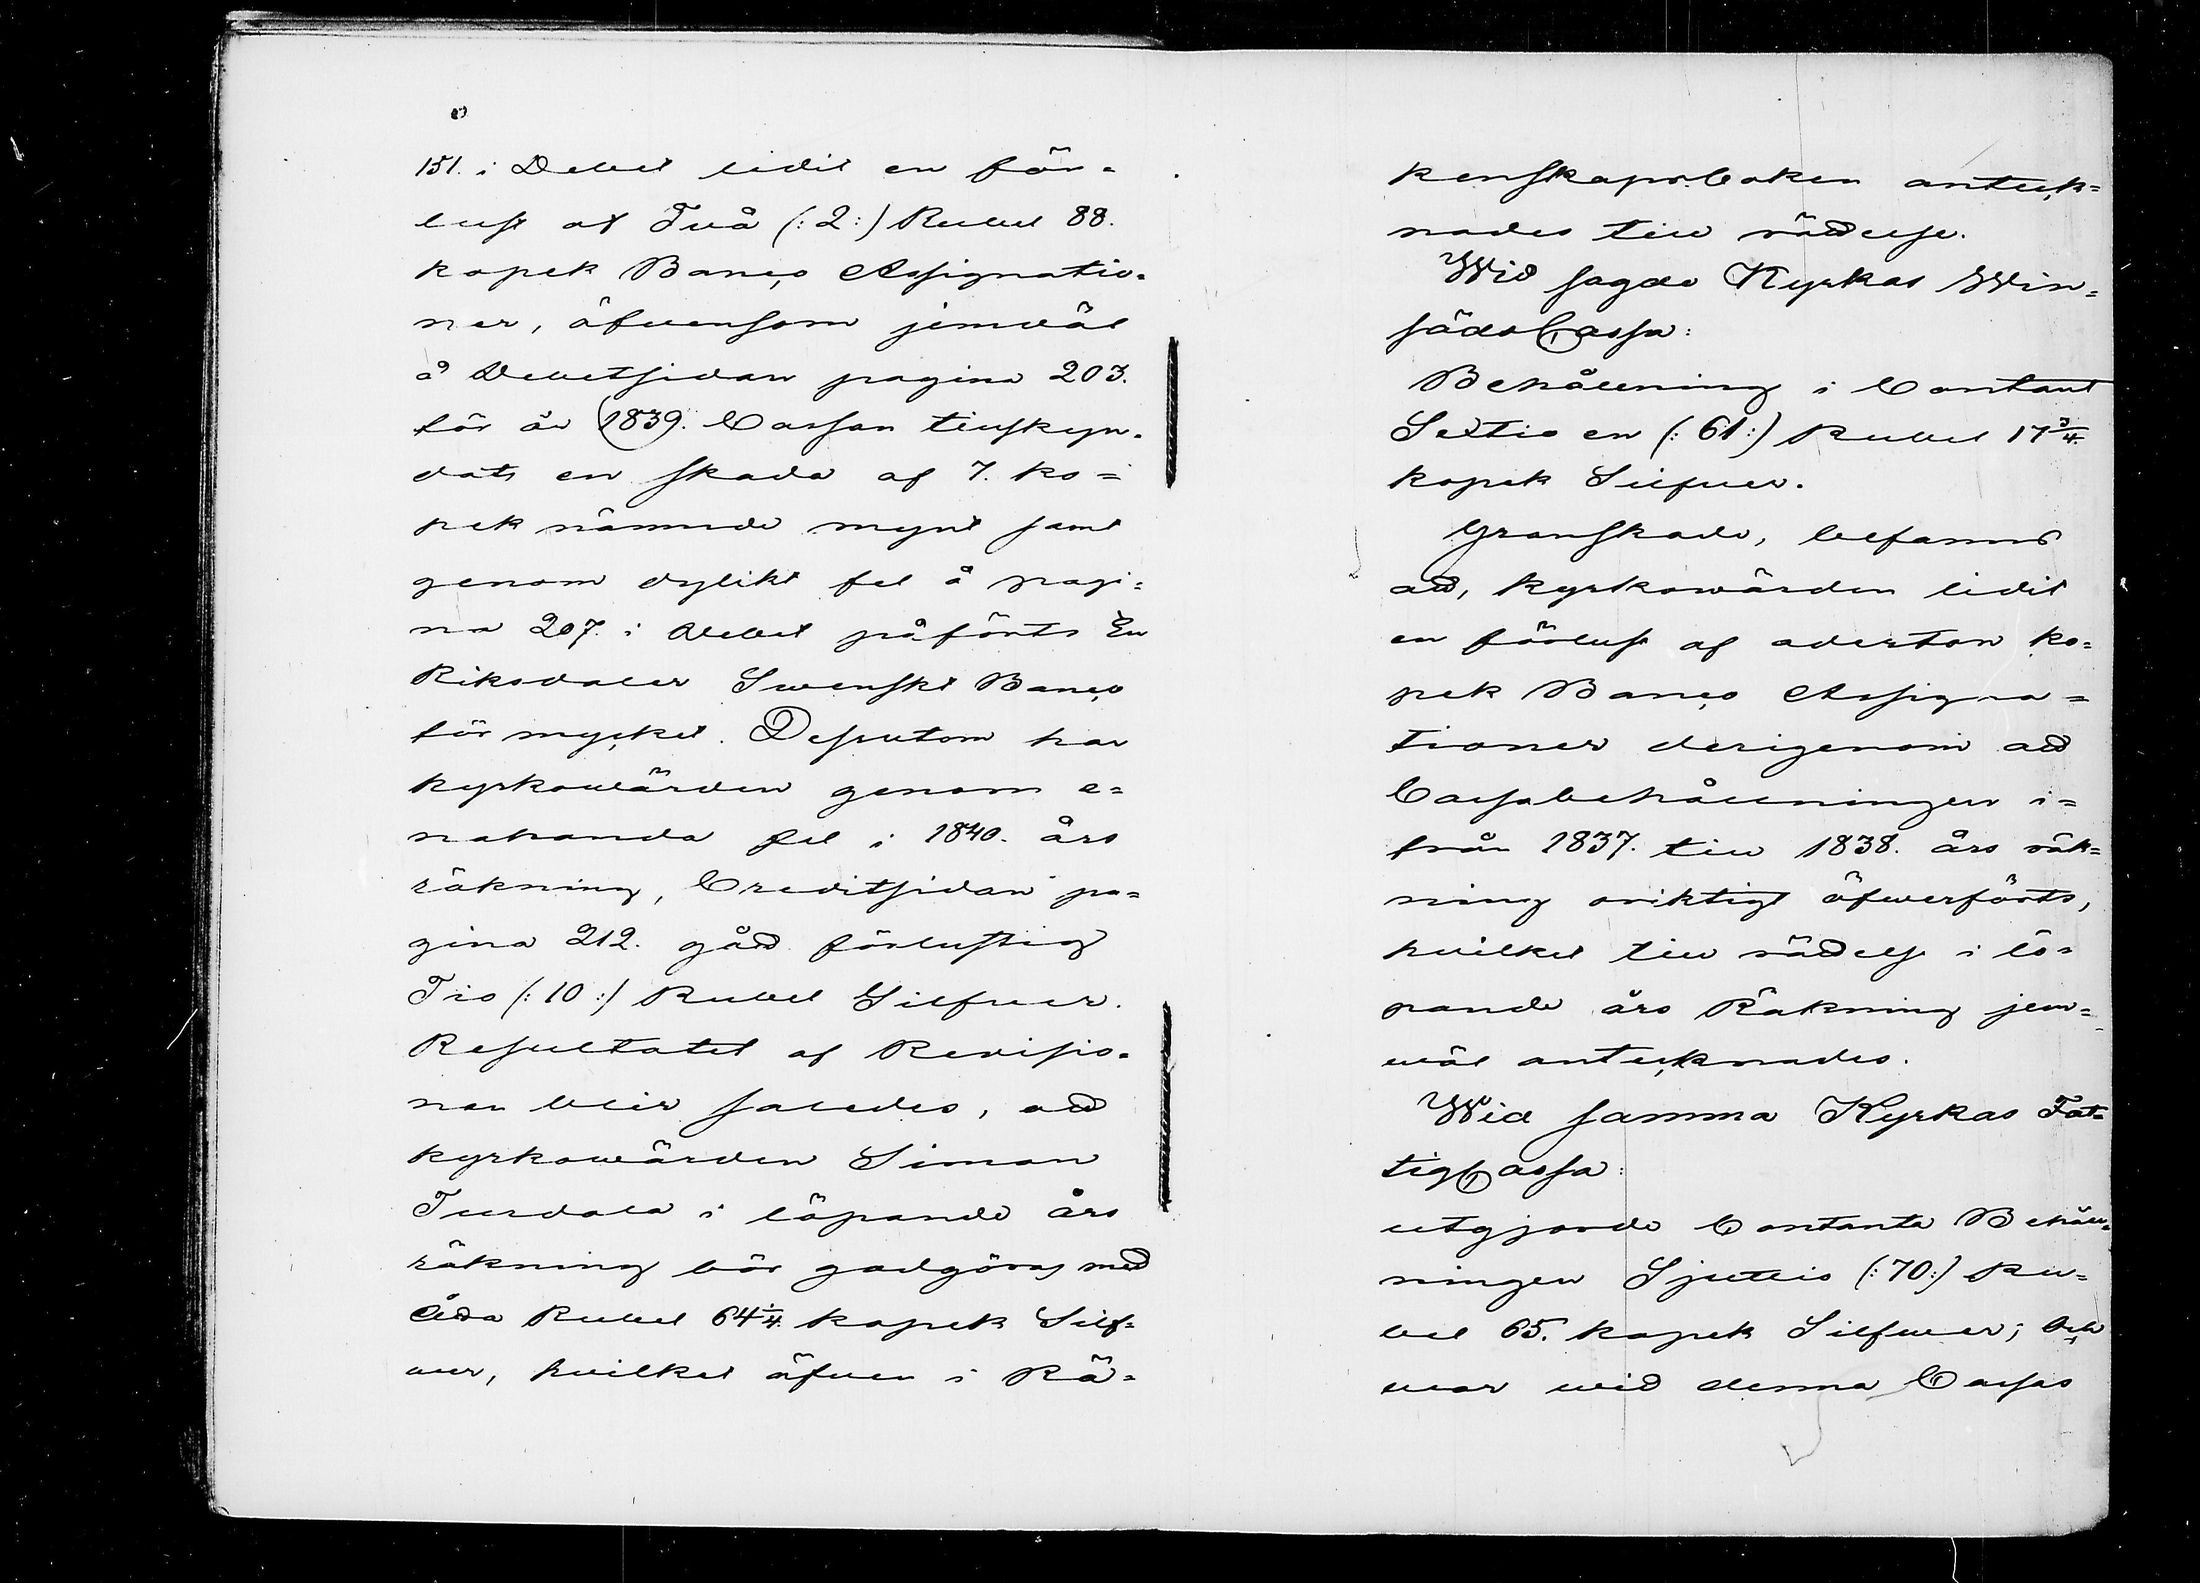 151. i Debet lidit en för-
lust af Två (: 2 :) Rubel 88.
kopek Banco Assignatio-
ner, äfvensom jemväl
å Debetsidan pagina 203.
för år 1839. Cassan tillskyn-
dats en skada af 7. ko=
pek nämnde mynt samt
genom dylikt fel å pagi=
na 207. i Debet påförts En
Riksdaler Swenskt Banco
för mycket. Dessutom har
kyrkowärden genom e=
nahanda fel i 1840. års
räkning, Creditsidan pa=
gina 212. gådt förlustig
Tio (: 10 :) Rubel Silfver.
Resultatet af Revisio-
nen blir saledes, att
kyrkowärden Simon
Turdala i löpande års
räkning bör godgöras med
Åtta Rubel 64 1/4. kopek Silf=
ver, hvilket äfven i Rä=
kenskapsboken anteck=
nades till rättelse.
Wid sagde Kyrkas Win=
sädsCassa:
Behållning i Contant
Sextio en (: 61 :) Rubel 17 3/4.
kopek Silfver.
Granskade, befanns
att, kyrkowärden lidit
en förlust af aderton ko=
pek Banco Assigna=
tioner derigenom att
Cassabehållningen i=
från 1837. till 1838. års räk=
ning oriktigt öfwerförts,
hvilket till rättelse i lö=
pande års Räkning jem=
wäl antecknades.
Wid samma Kyrkas Fat=
tigCassa:
utgjorde Contanta Behåll=
ningen Sjuttio (: 70 :) Ru=
bel 65. kopek Silfwer; och
war wid denna Cassas